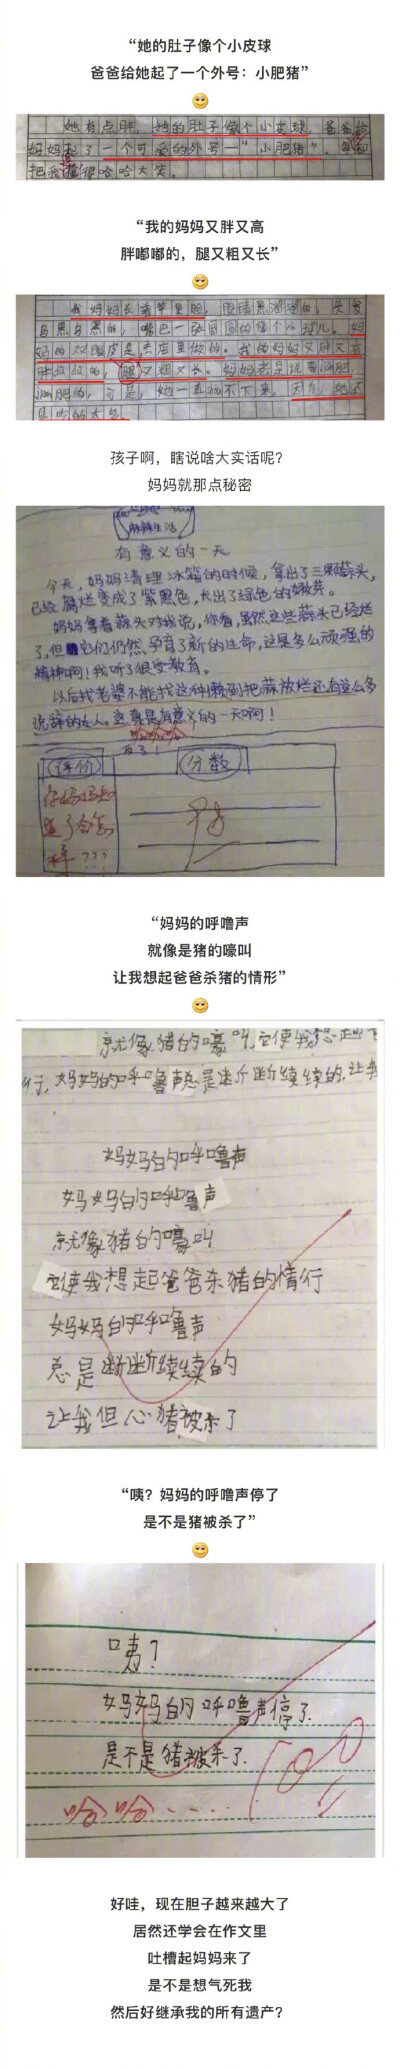 “她的肚子像个小皮球
爸爸给她起了一个外号：小肥猪”
她有点胖，她的肚子像个小皮球，爸爸给
妈妈起了一个可爱的外号—“小肥猪”。每
把我 得哈哈大笑。
“我的妈妈又胖又高
胖嘟嘟的，腿又粗又长”
我妈妈长着苹果脸，眼睛黑溜溜的，头发
乌黑乌黑的，嘴巴一张圆圆的像个小球儿。妈
妈的双眼皮是去店里做的。我的妈妈又胖又高
胖 的，腿又粗又长。妈妈老是说要减肥，
减肥的，可是，她一直 不下来，因为，她还
是吃的太多
孩子啊，瞎说啥大实话呢？
妈妈就那点秘密
麻辣生活
有意义的一天
今天，妈妈清理冰箱的时候，拿出了三颗蒜头，
已经腐烂变成了紫黑色，长出了绿色的嫩芽。
妈妈拿着蒜头对我说，你看，虽然这些蒜头已经烂
了，但它们仍然孕育了新的生命，这是多么顽强的
精神啊！我听了很受教育。
以后找老婆不能找这种懒到把蒜放烂还有这么多
说辞的女人。这真是有意义的一天啊！
哈哈哈
评价
分数
你妈妈知
道了会怎
样？？？
“妈妈的呼噜声
就像是猪的嚎叫
让我想起爸爸杀猪的情形”
就像猪的嚎叫，它使我想起
行，妈妈的呼噜声总是断断续续的，让我
妈妈的呼噜声
妈妈的呼噜声
就像猪的嚎叫
它使我想起爸爸杀猪的情行
妈妈的呼噜声
总是断断续续的
让我但心猪被杀了
“咦？妈妈的呼噜声停了
是不是猪被杀了”
咦？
妈妈的呼噜声停了.
是不是猪被杀了.
哈哈……
100
好哇，现在胆子越来越大了
居然还学会在作文里
吐槽起妈妈来了
是不是想气死我
然后好继承我的所有遗产？